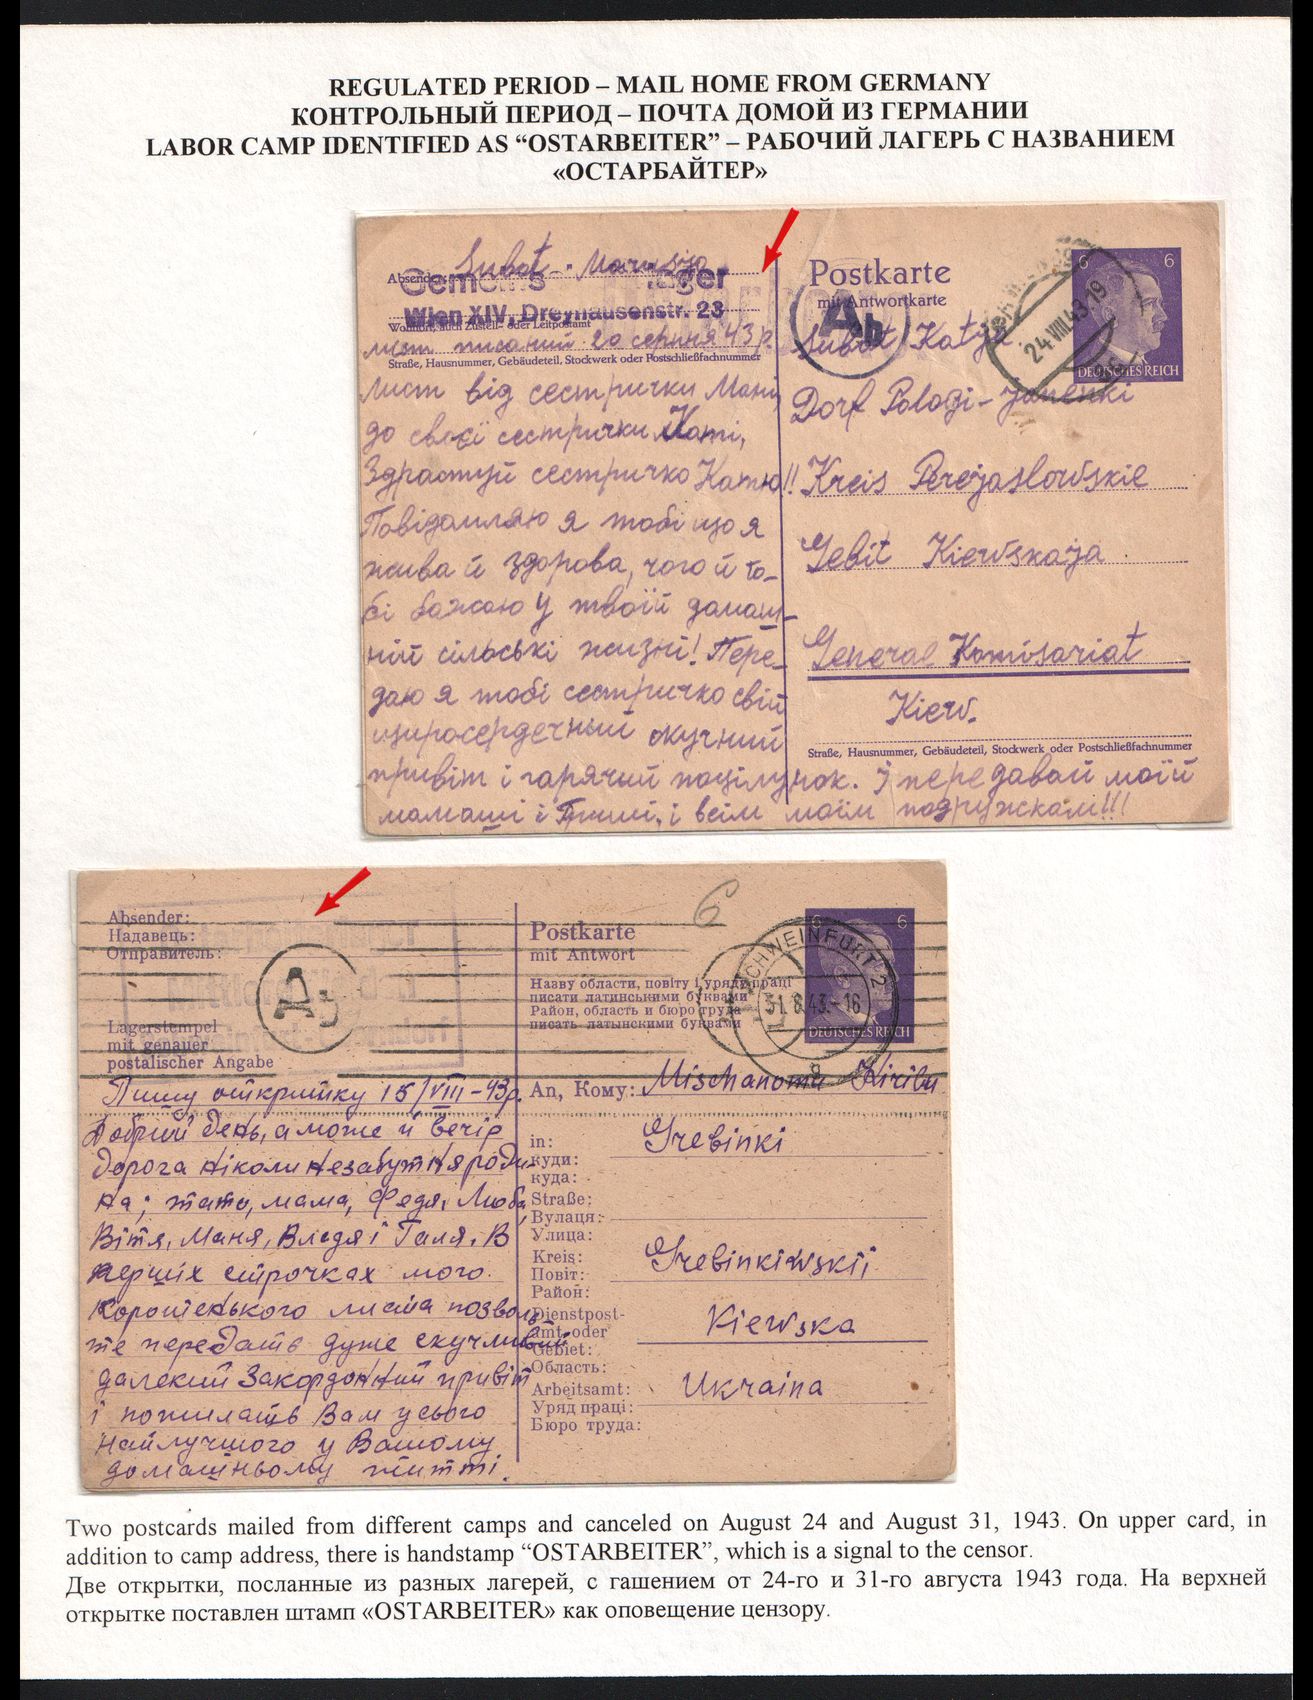 REGULATED PERIOD – MAIL HOME FROM GERMANY
КОНТРОЛЬНЫЙ ПЕРИОД – ПОЧТА ДОМОЙ ИЗ ГЕРМАНИИ
LABOR CAMP IDENTIFIED AS “OSTARBEITER” – РАБОЧИЙ ЛАГЕРЬ С НАЗВАНИЕМ
«ОСТАРБАЙТЕР»
Wien XIV, Dreyhausenstr. 23
Wohnort, auch Zustell- oder Leitpostamt
лист писаний 20 серпня 43 р.
Straße, Hausnummer, Gebäudeteil, Stockwerk oder Postschließfachnummer
лист від сестрички Мані
до своєї сестрички Каті,
Здрастуй сестричко Катю!!
Повідомляю я тобі що я
жива й здорова, чого й то-
бі бажаю у твоїй домаш-
ній сільскі жизні! Пере-
даю я тобі сестричко свій
щиросердечний скучний
привіт і гарячий поцілунок. І передавай моїй
мамаші і і всім моїм подружкам!!!
Postkarte
mit Antwortkarte
Ab
6 6
DEUTSCHES REICH
24.VIII.43 19
Lubot Katja
Dorf Pologi-Janenki
Kreis Perejaslowskie
Gebit Kiewskaja
General Komisariat
Kiew.
Straße, Hausnummer, Gebäudeteil, Stockwerk oder Postschließfachnummer
Absender:
Надавець:
Отправитель:
Lagerstempel
mit genauer
postalischer Angabe
Пишу откритку 15/VIII-43р.
Добрий день, а може й вечір
дорога ніколи незабутня роди-
на; тато, мама, Федя, Люба,
Вітя, Маня, Владя і Галя. В
перших строчках мого
коротенького листа позволь-
те передать дуже скучливий
далекий закордонний привіт
і пожилать Вам усього
найлучшого у Вашому
домашньому житті.
6
Postkarte
mit Antwort
Назву области, повіту і уряду праці
писати латинськими буквами
Район, область и бюро труда
писать латынскими буквами
SCHWEINFURT 2
31.8.43.-16
6 6
DEUTSCHES REICH
An, Кому: Mischanomu Kirilu
in: Grebinki
куди:
куда:
Straße:
Вулаця:
Улица:
Kreis: Grebinkiwskij
Повіт:
Район:
Dienstpost-
amt oder Kiewska
Gebiet:
Область:
Arbeitsamt: Ukraina
Уряд праці:
Бюро труда:
Two postcards mailed from different camps and canceled on August 24 and August 31, 1943. On upper card, in
addition to camp address, there is handstamp “OSTARBEITER”, which is a signal to the censor.
Две открытки, посланные из разных лагерей, с гашением от 24-го и 31-го августа 1943 года. На верхней
открытке поставлен штамп «OSTARBEITER» как оповещение цензору.